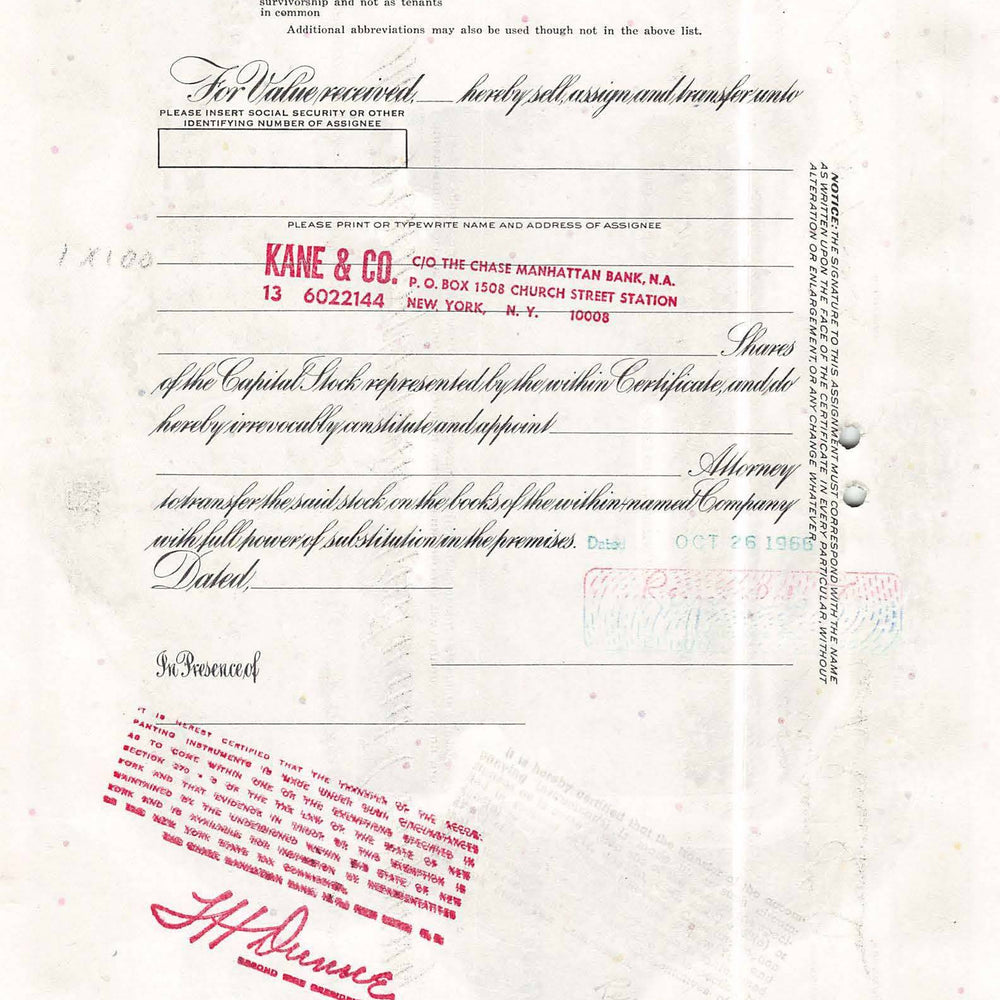 survivorship and not as tenants
in common
Additional abbreviations may also be used though not in the above list.
For Value received, hereby sell, assign and transfer unto
PLEASE INSERT SOCIAL SECURITY OR OTHER
IDENTIFYING NUMBER OF ASSIGNEE
PLEASE PRINT OR TYPEWRITE NAME AND ADDRESS OF ASSIGNEE
1 X 100
KANE & CO. C/O THE CHASE MANHATTAN BANK, N.A.
P. O. BOX 1508 CHURCH STREET STATION
13 6022144 NEW YORK, N. Y. 10008
Shares
of the Capital Stock represented by the within Certificate, and do
hereby irrevocably constitute and appoint
Attorney
to transfer the said stock on the books of the within-named Company
with full power of substitution in the premises.
Dated OCT 26 1966
Dated,
In Presence of
NOTICE: THE SIGNATURE TO THIS ASSIGNMENT MUST CORRESPOND WITH THE NAME
AS WRITTEN UPON THE FACE OF THE CERTIFICATE IN EVERY PARTICULAR, WITHOUT
ALTERATION OR ENLARGEMENT, OR ANY CHANGE WHATEVER.
IT IS HEREBY CERTIFIED THAT THE TRANSFER OF THE ACCOM-
PANYING INSTRUMENTS IS MADE UNDER SUCH CIRCUMSTANCES
AS TO COME WITHIN ONE OF THE EXEMPTIONS SPECIFIED IN
SECTION 270 OF THE TAX LAW OF THE STATE OF NEW
YORK AND THAT EVIDENCE IN PROOF OF THIS EXEMPTION IS
MAINTAINED BY THE UNDERSIGNED WITHIN THE STATE OF NEW
YORK AND IS AVAILABLE FOR INSPECTION BY REPRESENTATIVES
OF THE NEW YORK STATE TAX COMMISSION.
THE CHASE MANHATTAN BANK
Dunne
SECOND VICE PRESIDENT
It is hereby certified that the transfer of the accom-